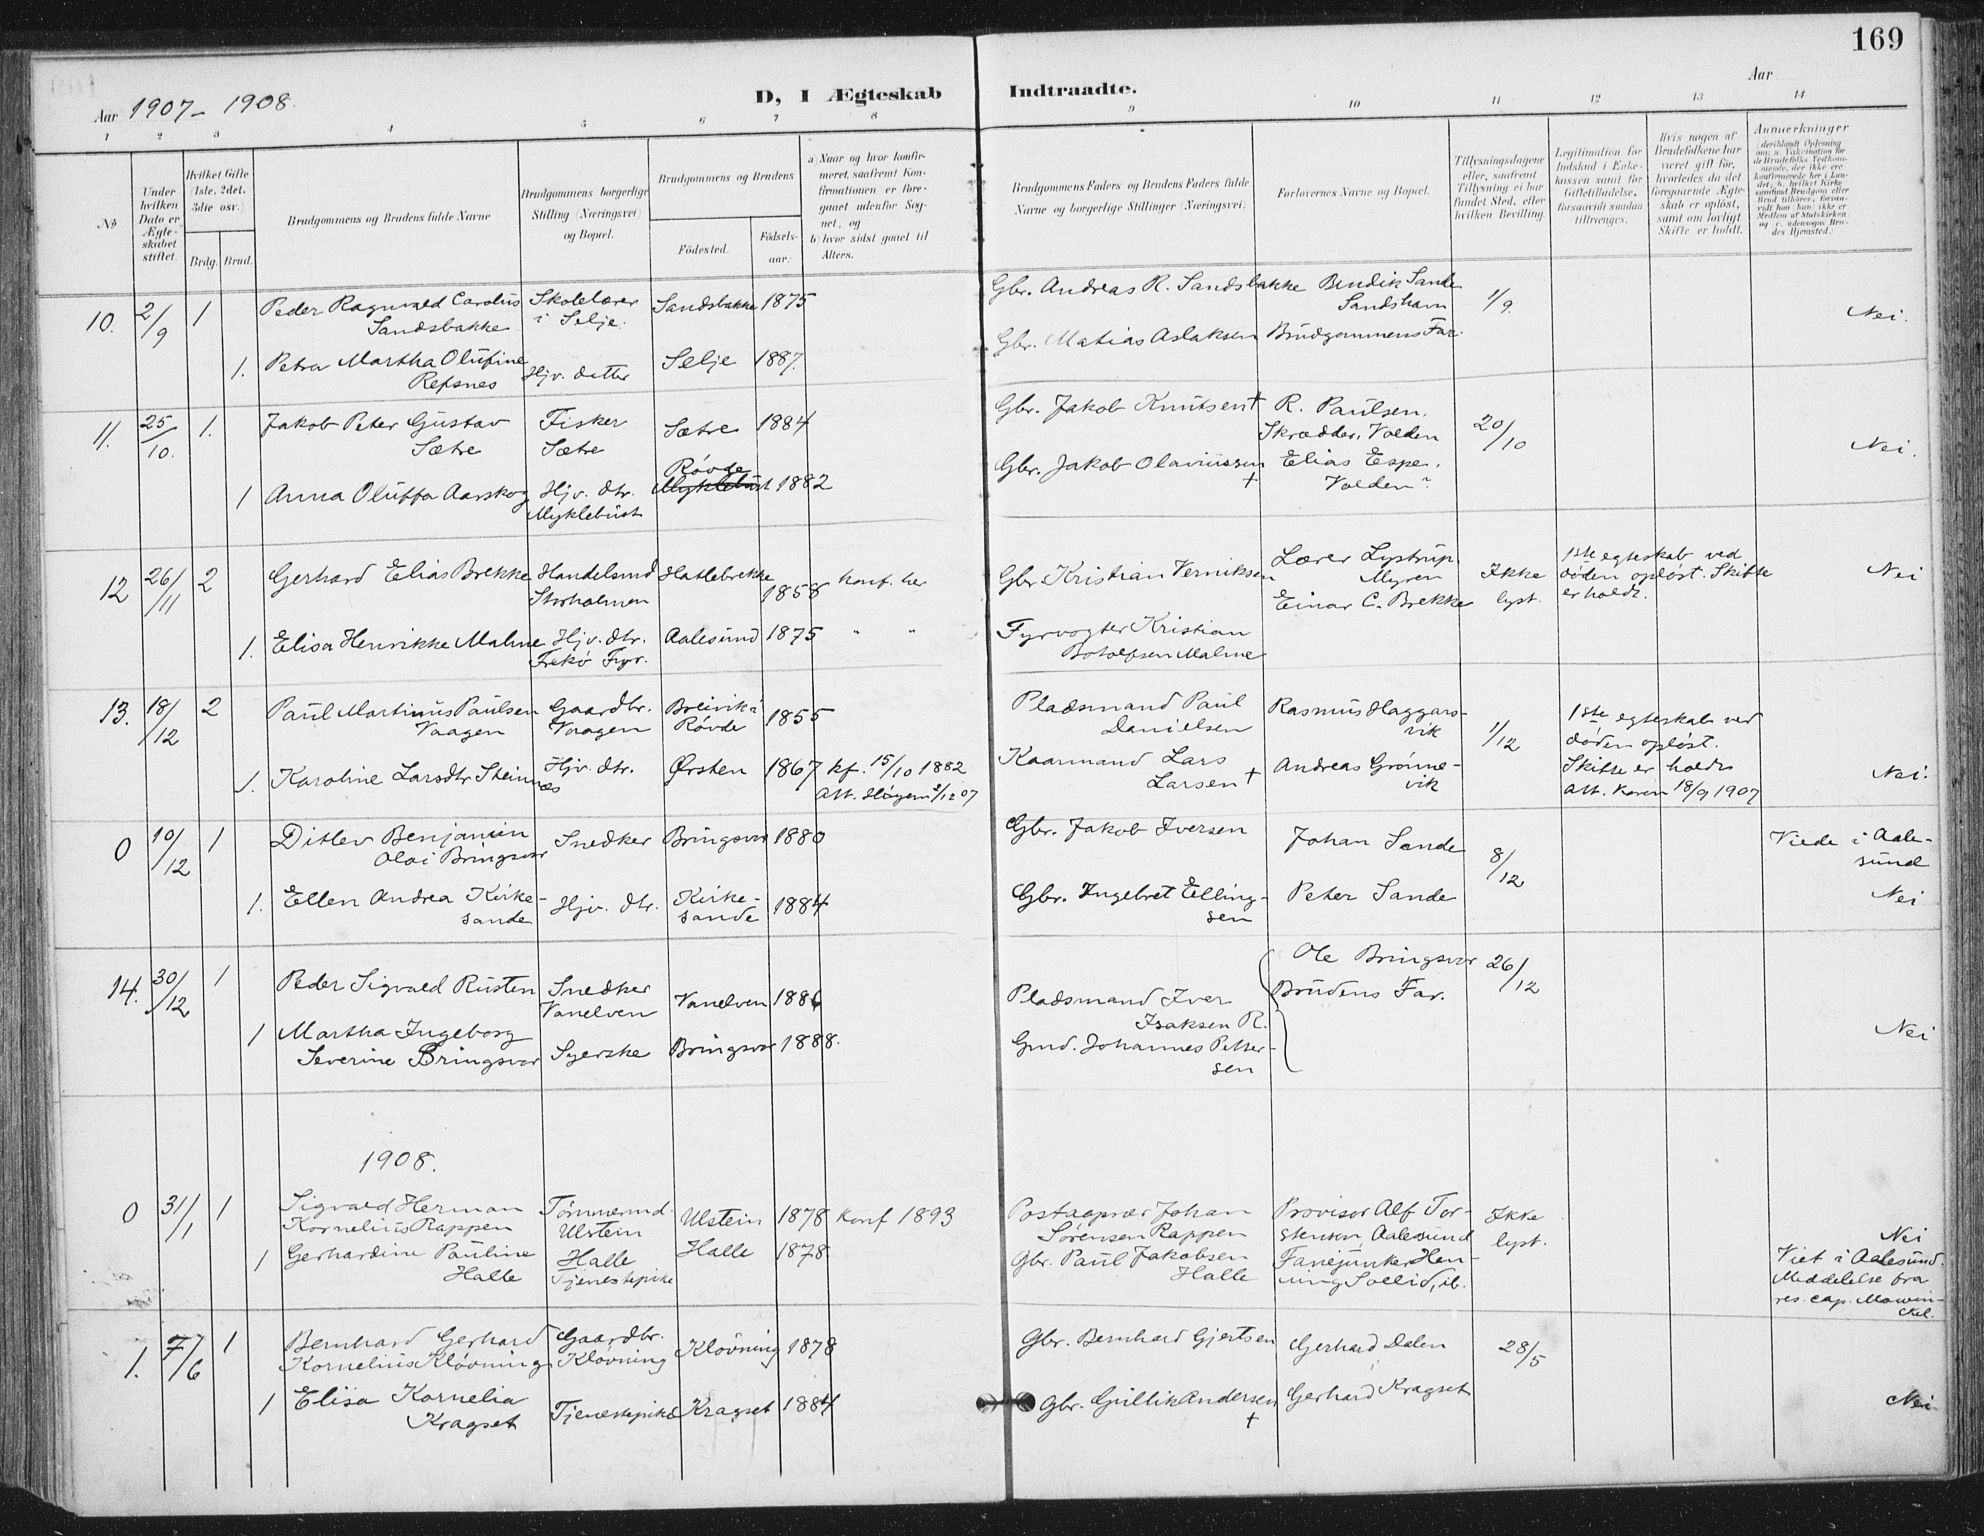 169
Aar 1907 - 1908.
D, I Ægteskab Indtraadte.
Aar
1 2 3 4 5 6 7 8 9 10 11 12 13 14
No
Under hvilken Dato er Ægteskabet stiftet.
Hvilket Gifte (1ste, 2det, 3die osv.)
Brdg. Brud.
Brudgommens og Brudens fulde Navne
Brudgommens borgerlige Stilling (Næringsvei) og Bopæl.
Brudgommens og Brudens
Fødested.
Fødselsaar.
a) Naar og hvor konfirmeret, saafremt Konfirmationen er foregaaet udenfor Sognet, og
b) hvor sidst gaaet til Alters.
Brudgommens Faders og Brudens Faders fulde Navne og borgerlige Stillinger (Næringsvei).
Forlovernes Navne og Bopæl.
Tillysningsdagene eller, saafremt Tillysning ei har fundet Sted, efter hvilken Bevilling.
Legitimation for Indskud i Enkekassen samt for Giftetilladelse, forsaavidt saadan tiltrænges.
Hvis nogen af Brudefolkene har været gift før, hvorledes da det foregaaende Ægteskab er opløst, samt om lovligt Skifte er holdt.
Anmerkninger
10. 2/9 1 Peder Ragnvald Carolus Skolelærer Sandsbakke 1875 Gbr. Andreas R. Sandsbakke Bendik Sande 1/9
Sandsbakke i Selje. Sandshavn Nei.
1. Petra Martha Olufine Hjv. datter Selje 1887. Gbr. Matias Aslaksen Brudgommens Far.
Refsnes
11. 25/10. 1. Jakob Peter Gustav Fisker Sætre 1884 Gbr. Jakob Knutsen † R. Paulsen, 20/10
Sætre Sætre Skrædder, Volden Nei.
1 Anna Oluffa Aarskog Hjv. dtr. Røvde Myklebust 1882 Gbr. Jakob Olaviussen † Elias Espe,
Myklebust Volden
12 26/11 2 Gerhard Elias Brekke Handelsmd Hatlebrekke 1858 konf. her Gbr Kristian Verniksen Lærer Lystrup Ikke 1ste egteskab ved Nei
Storholmen Myren lyst. døden opløst. Skifte
Einar C. Brekke er holdt.
1. Elisa Henrikke Malme Hjv. dtr. Aalesund 1875 " " Fyrvogter Kristian
Frekø Fyr. Botolfsen Malme
13. 18/12 2 Paul Martinus Paulsen Gaardbr. Breivik i 1855 Pladsmand Paul Rasmus Haggars- 1/12 1ste egteskab ved
Vaagen Vaagen Røvde Danielsen vik døden opløst.
1. Karoline Larsdtr Steinnæs Hjv. dtr. Ørsten 1867 kf. 15/10 1882 Kaarmand Lars Andreas Grønne- Skifte er holdt Nei.
Att. 2/12 07 Larsen † vik Att. 18/9 1907
0 10/12 1 Ditlev Benjamin Snedker Bringsvor 1880 Gbr. Jakob Iversen Johan Sande 8/12 Viede i Aale-
Olai Bringsvor sund
1. Ellen Andrea Kirke- Hjv. dtr. Kirke- 1884 Gbr. Ingebret Elling- Peter Sande Nei
sande sande sen
14. 30/12 1 Peder Sigvald Rusten Snedker Vanelven 1886 Pladsmand Iver Ole Bringsvor 26/12
Vanelven Isaksen R. Brudens Far.
1 Martha Ingeborg Syerske Bringsvor 1888. Gmd. Johannes Petter- Nei
Severine Bringsvor sen
1908.
0 31/1 1 Sigvald Herman Tømmermd. Ulstein 1878 Konf 1893 Johan Provisor Alf Tor- Ikke
Kornelius Rappen Ulstein Sørensen Rappen stensen Aalesund lyst. Nei
1 Gerhardine Pauline Halle Halle 1878. Gbr. Paul Jakobsen Fanejunker Hen- Viet i Aalesund.
Halle Tjenestepike Halle ning Sollid, ib. Meddelelse fra
res. cap. Mowin-
ckel.
1. 7/6 1 Bernhard Gerhard Gaardbr. Kløvning 1878 Gbr. Bernhard Gjertsen Gerhard Dalen 28/5
Kornelius Kløvning Kløvning
1 Elisa Kornelia Tjenestepike Kragset 1884 Gbr. Gullik Andersen † Gerhard Kragset Nei
Kragset